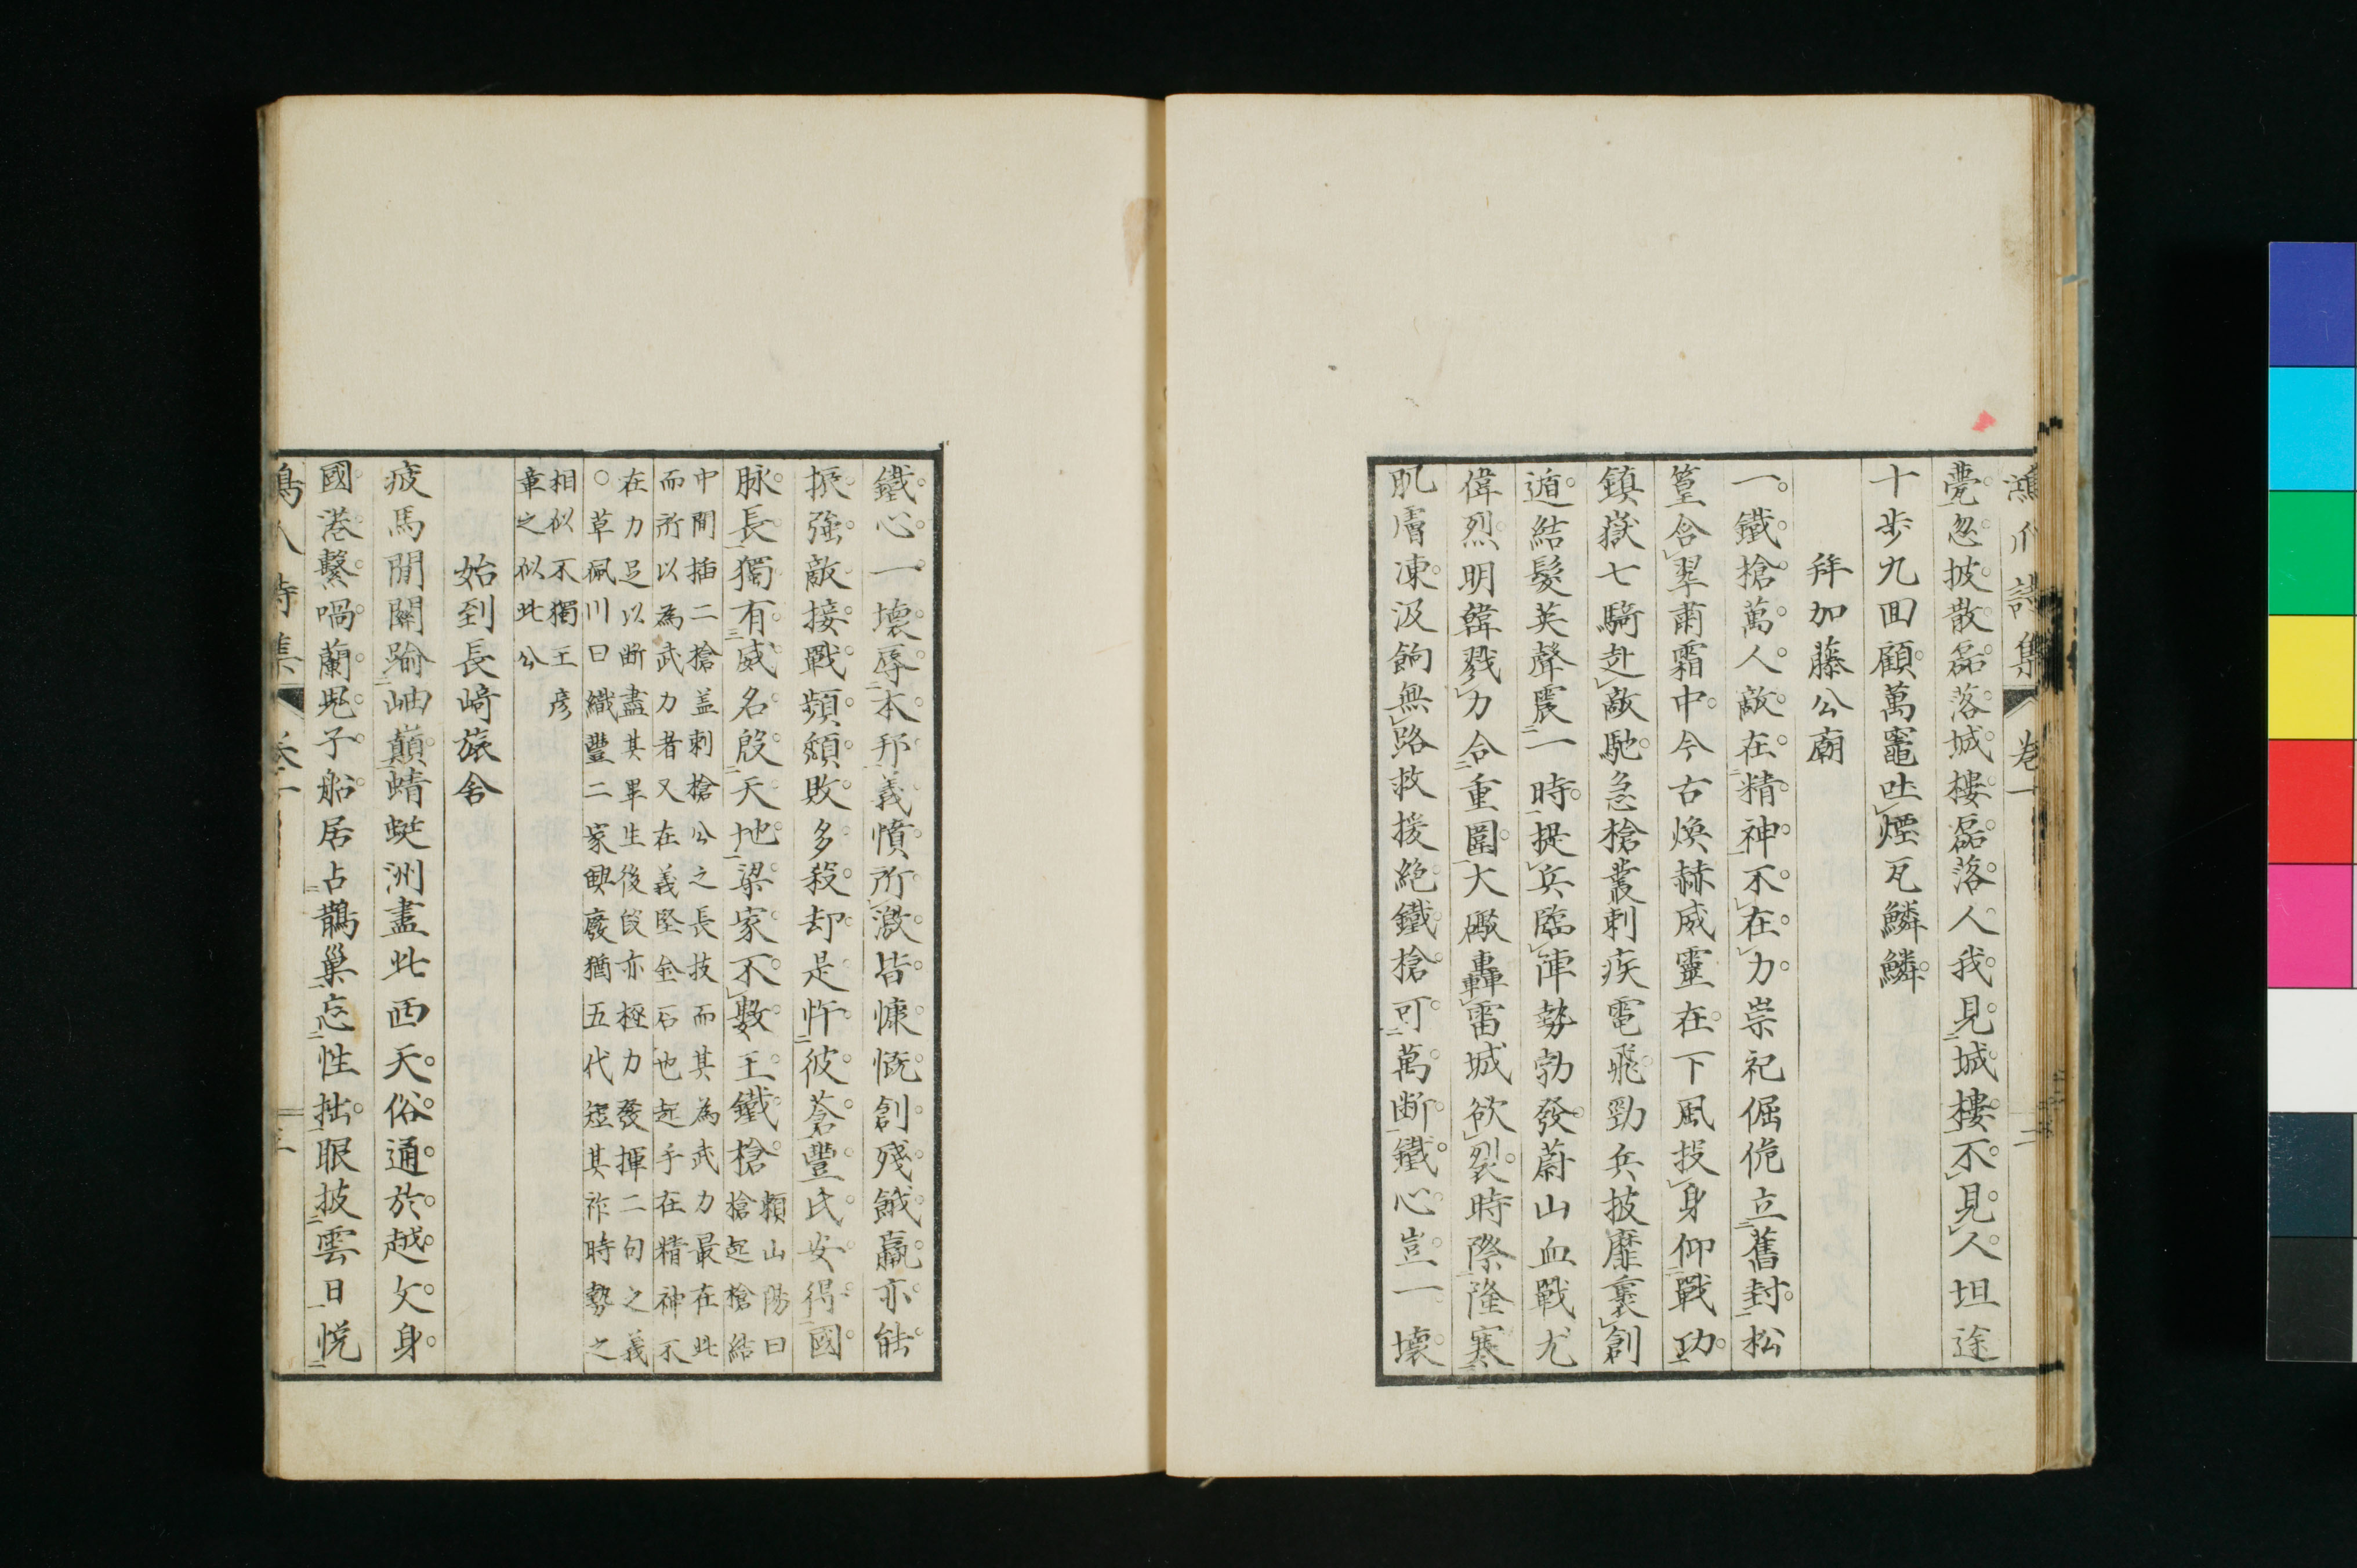 甍忽披散磊落城樓磊落人我見城樓不見人坦途
十歩九回顧萬竈吐煙瓦鱗鱗
拜加藤公廟
一鐵搶萬人敵在精神不在力崇祀倔佹立舊封松
篁含翠肅霜中今古煥赫威靈在下風投身仰戰功
鎮嶽七騎赴敵馳急槍叢刺疾電飛勁兵披靡裹創
遁結髮英聲震一時提兵臨陣勢勃發蔚山血戰尤
偉烈明韓戮力合重圍大礮轟雷城欲裂時際隆寒
肌膚凍汲餉無路救援絶鐵槍可萬断鐵心豈一壞
鐵心一壞辱本邦義憤所激皆慷慨創殘餓羸亦能
振強敵接戰頻頻敗多殺却是忤彼蒼豐氏安得國
脉長獨有威名殷天地梁家不數王鐵槍
頼山陽曰槍起槍結
中間插二槍盖刺槍公之長技而其為武力最在此
而所以為武力者又在義堅金石也起手在精神不
在力足以断盡其畢生後段亦極力發揮二句之義
○草佩川曰織豐二家興廢猶五代短其祚時勢之
相似不獨王彦
章之似此公
始到長崎旅舍
疲馬間關踰岫巔蜻蜓洲盡此西天俗通於越文身
國港繫喎蘭兒子船居占鵲巢忘性拙眼披雲日悦